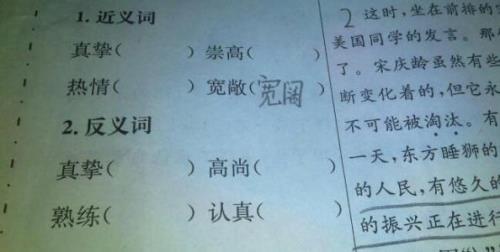 1.近义词
真挚(  )崇高(  )
热情(  )宽敞(宽阔)
2.反义词
真挚(  )高尚(  )
熟练(  )认真(  )
2 这时,坐在前排的
美国同学的发言。那
了。宋庆龄虽然有些
断变化着的,但它永
不可能被淘汰。有
一天,东方睡狮的
的人民,有悠久的
的振兴正在进行